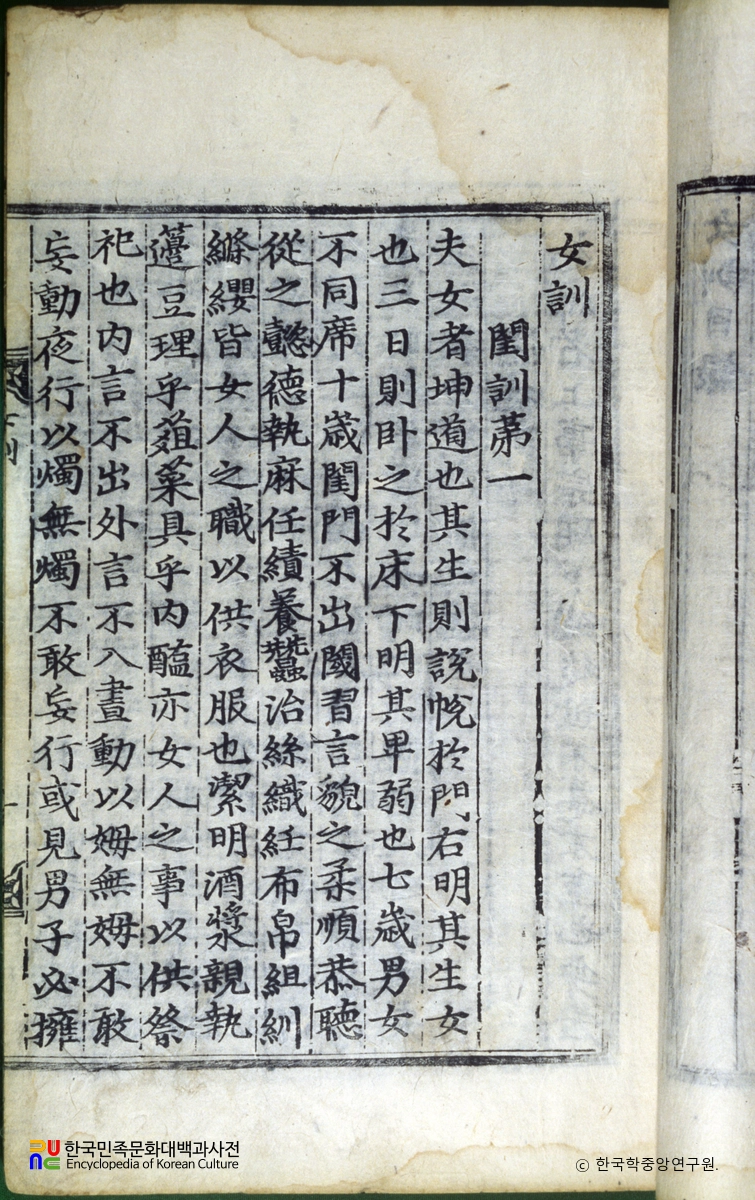 女訓
閨訓苐一
夫女者坤道也其生則設帨於門右明其生女
也三日則卧之於床下明其卑弱也七歲男女
不同席十歲閨門不出閫習言貌之柔順恭聽
從之懿德執麻任績養蠶治絲織紝布帛組紃
縧纓皆女人之職以供衣服也潔明酒漿親執
籩豆理乎葅菜具乎內醢亦女人之事以供祭
祀也內言不出外言不入晝動以姆無姆不敢
妄動夜行以燭無燭不敢妄行或見男子必擁
한국민족문화대백과사전
Encyclopedia of Korean Culture
© 한국학중앙연구원.